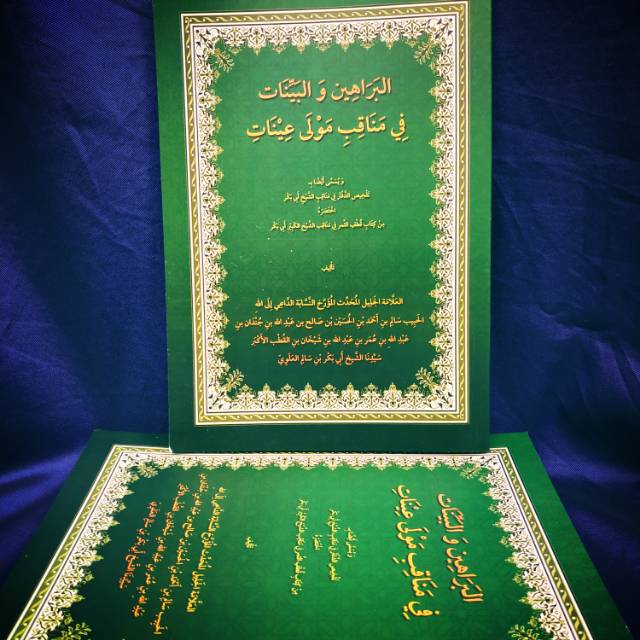 البَرَاهِين وَ البَيِّنَات
فِي مَنَاقِبِ مَوْلَى عِيْنَاتِ
وَيُسَمَّى أَيْضًا بِـ
تَلْخِيصِ الدَّفْتَر فِي مَنَاقِبِ الشَّيْخِ أَبِي بَكْر
اخْتَصَرَهُ
مِنْ كِتَابِ قَطْفِ الثَّمَر فِي مَنَاقِبِ الشَّيْخِ الكَبِيْرِ أَبِي بَكْر
تأليف
العَلَّامَة الجَلِيل المُحَدِّث المُؤَرِّخ النَّسَّابَة الدَّاعِي إِلَى الله
الحَبِيب سَالِم بِن أَحْمَد بِنِ الحُسَيْن بْن صَالِح بن عَبْدِ الله بنِ جِنْدَان بنِ
عَبْدِ الله بِن عُمَر بن عَبْدِ الله بنِ شَيْخَان بنِ القُطْب الأَكْبَر
سَيِّدِنَا الشَّيْخ أَبِي بَكْرِ بْنِ سَالِم العَلَوِيّ
البَرَاهِين وَ البَيِّنَات
فِي مَنَاقِبِ مَوْلَى عِيْنَاتِ